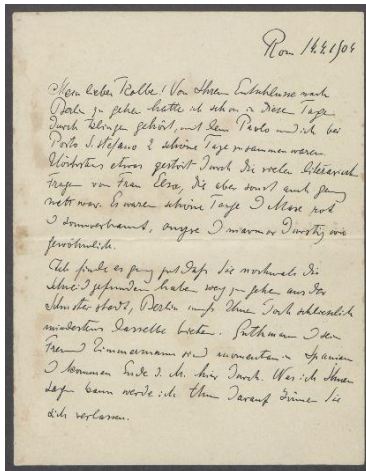 Rom 14.4.1904
Mein lieber Kolbe! Von Ihrem Entschlusse nach
Berlin zu gehen hatte ich schon in diesen Tagen
durch Klinger gehört, mit dem Paolo und ich bei
Porto S. Stefano 2 schöne Tage zusammen waren.
Höchstens etwas gestört durch die vielen literarisch
Fragen von Frau Elsa, die aber sonst auch ganz
nett war. Es waren schöne Tage
sonnverbrannt, wie
gewöhnlich.
Ich finde es ganz gut daß Sie nochmals die
Schneid gefunden haben weg zu gehen aus der
Berlin muß Ihnen doch schließlich
mindestens dasselbe bieten. Guthmann u sein
Freund Zimmermann sind momentan in Spanien
u kommen Ende d. M. hier durch. Was ich Ihnen
sagen kann werde ich thun darauf können Sie
sich verlassen.